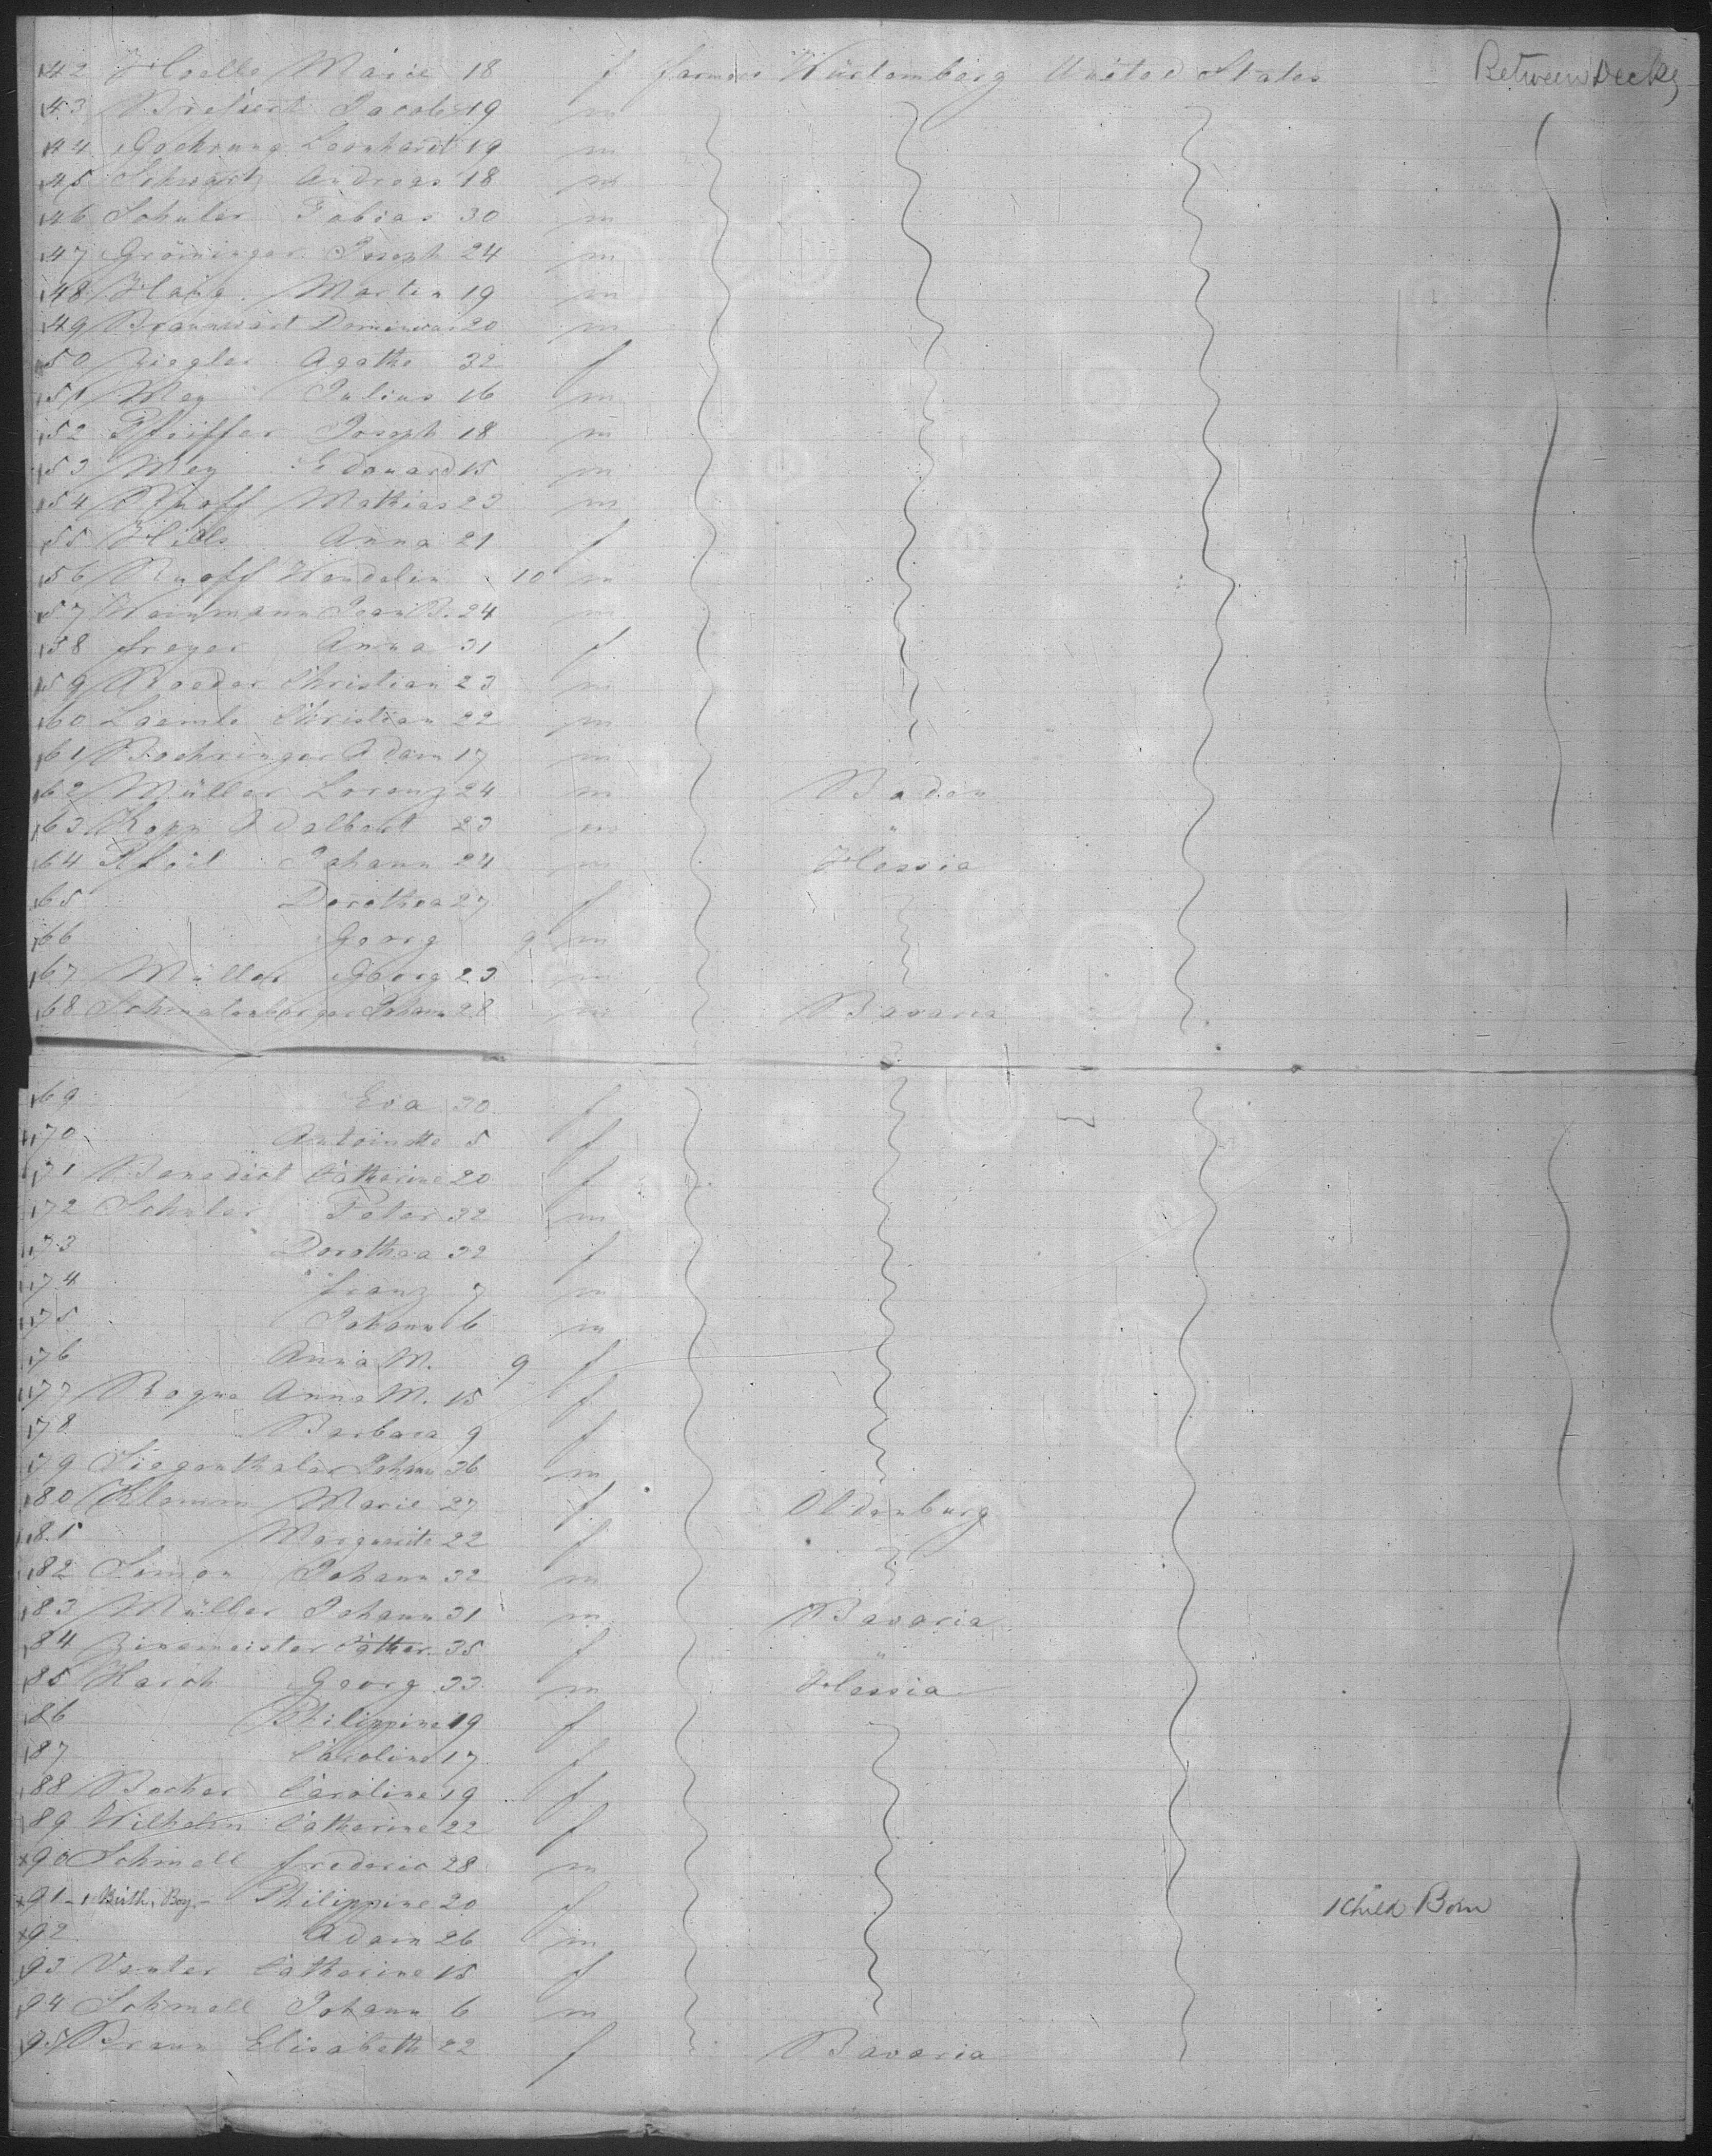 142 Hoelle Marie 18 f farmers Würtemberg United States Between Decks
143 Jacob 19 m
144 Goehrung Leonhardt 19 m
145 Schwartz Andreas 18 m
146 Schuler Tobias 30 m
147 Gröninger Joseph 24 m
148 Haug Martin 19 m
149 Braunwart 20 m
150 Ziegler Agathe 32 f
151 Mey Julius 16 m
152 Pfeiffer Joseph 18 m
153 Mey Edouard 15 m
154 Ruoff Mathias 23 m
155 Anna 21 f
156 Ruoff Wendelin 10 m
157 Weinmann Jean B. 24 m
158 freyer Anna 31 f
159 Roeder Christian 23 m
160 Laemle Christian 22 m
161 Boehringer Adam 17 m
162 Müller Lorenz 24 m Baden
163 Kopp Adalbert 23 m "
164 Pfeil Johann 24 m Hessia
165 Dorothea 27 f
166 Georg 9 m
167 Müller Georg 23 m
168 Schmalenberger Johann 28 m Bavaria
169 Eva 30 f
170 Antoinette 5 f
171 Benedict Catherine 20 f
172 Schuler Peter 32 m
173 Dorothea 32 f
174 franz 7 m
175 Johann 6 m
176 Anna M. 9 f
177 Anna M. 15 f
178 Barbara 9 f
179 Siegenthaler Johann 36 m
180 Klemm Marie 27 f Oldenburg
181 Marguerite 22 f
182 Simon Johann 32 m
183 Müller Johann 31 m Bavaria
184 Zinsmeister Cather. 35 f "
185 Harch Georg 33 m Hessia
186 Philippine 19 f
187 Caroline 17 f
188 Becker Caroline 19 f
189 Wilhelm Catherine 22 f
190 Schmell frederic 28 m
191 - 1 Birth, Boy - Philippine 20 f 1 Child Born
192 Adam 26 m
193 Venter Catherine 15 f
194 Schmell Johann 6 m
195 Braun Elisabeth 22 f Bavaria